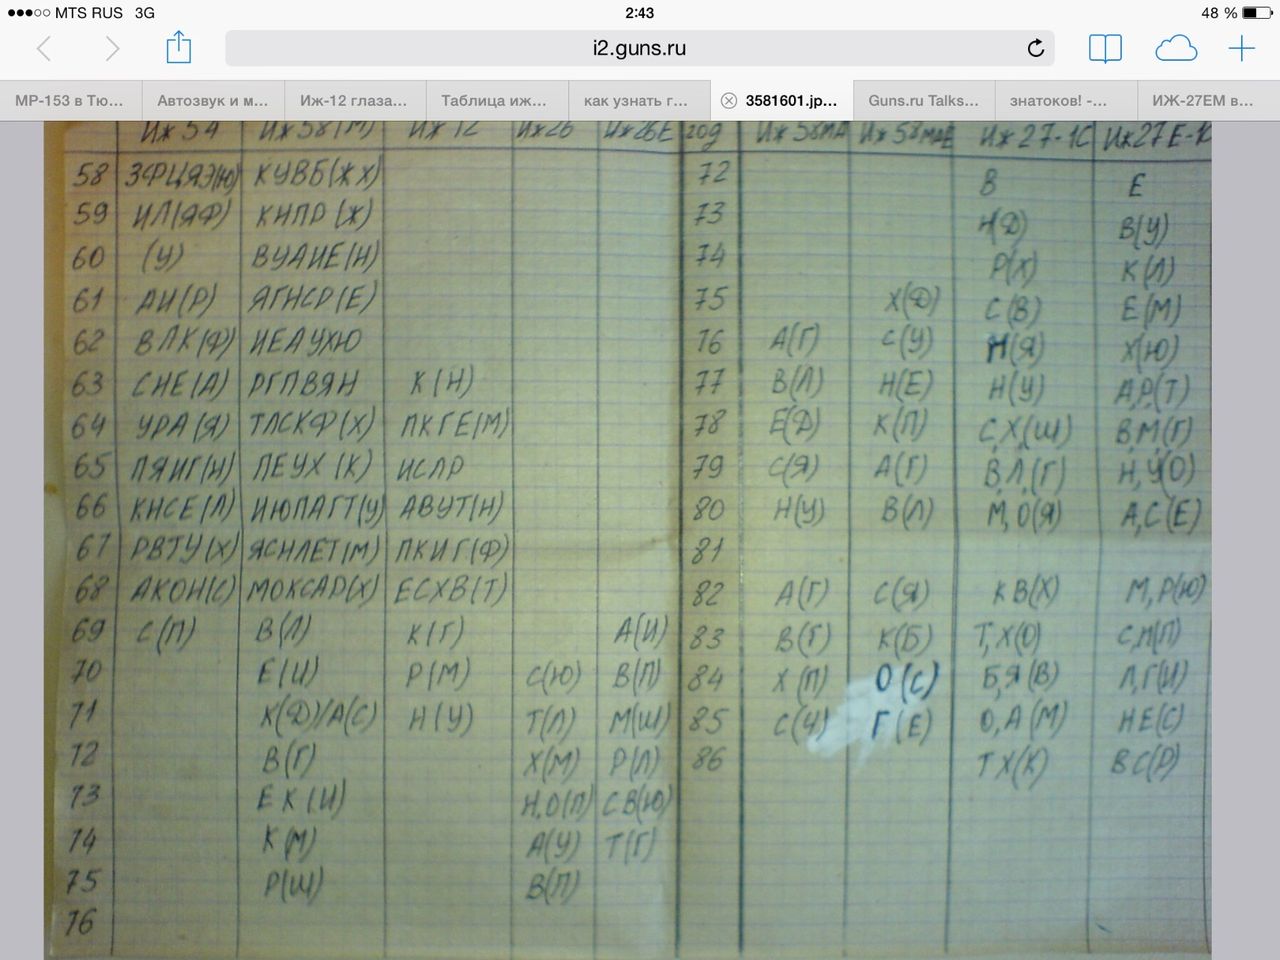 MTS RUS 3G 2:43 48 %
i2.guns.ru
МР-153 в Тю... Автозвук и м... Иж-12 глаза... Таблица иж... как узнать г... 3581601.jp... Guns.ru Talks... знатоков! -... ИЖ-27ЕМ в...
Иж 54 Иж 58(М) Иж 12 Иж26 Иж26Е год Иж 58МА Иж 58МАЕ Иж 27-1С Иж27Е-1С
58 ЗФЦЯЭ(Ю) КУВБ(ЖХ) 72 В Е
59 ИЛ(ЯФ) КНПР(Ж) 73 Н(Д) В(У)
60 (У) ВУАИЕ(Н) 74 Р(Х) К(Л)
61 АИ(Р) ЯГНСР(Е) 75 Х(Д) С(В) Е(М)
62 ВЛК(Ф) ИЕАУХЮ 76 А(Г) С(У) М(Я) Х(Ю)
63 СНЕ(А) РГПВЯН К(Н) 77 В(Л) Н(Е) Н(У) А,Р,(Т)
64 УРА(Я) ТЛСКФ(Х) ПКГЕ(М) 78 Е(Д) К(П) С,Х,(Ш) В,М,(Г)
65 ПЯИГ(Н) ЛЕУХ(К) ИСЛР 79 С(Я) А(Г) В,Л,(Г) Н,У(О)
66 КНСЕ(Л) ИЮПАГТ(У) АВУТ(Н) 80 Н(У) В(Л) М,О(Я) А,С(Е)
67 РВТУ(Х) ЯСНЛЕТ(М) ПКИГ(Ф) 81
68 АКОН(С) МОКСАР(Х) ЕСХВ(Т) 82 А(Г) С(Я) КВ(Х) М,Р(Ю)
69 С(П) В(Л) К(Г) А(И) 83 В(Г) К(Б) Т,Х(О) С,П(Л)
70 Е(И) Р(М) С(Ю) В(П) 84 Х(П) О(С) Б,Я(В) Л,Г(И)
71 К(Д)/А(С) Н(У) Т(Л) М(Ш) 85 С(Ч) Г(Е) О,А(М) НЕ(С)
72 В(Г) Х(М) Р(Л) 86 ТХ(К) ВС(Р)
73 ЕК(И) Н,О(П) СВ(Ю)
74 К(М) А(У) Т(Г)
75 Р(Ш) В(П)
76